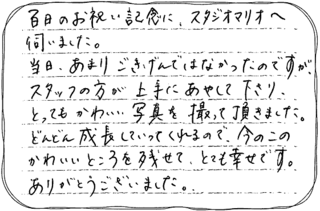 百日のお祝い記念に、スタジオマリオへ
伺いました。
当日、あまりごきげんではなかったのですが、
スタッフの方が上手にあやして下さり、
とってもかわいい写真を撮って頂きました。
どんどん成長していってくれるので、今のこの
かわいいところを残せて、とても幸せです。
ありがとうございました。